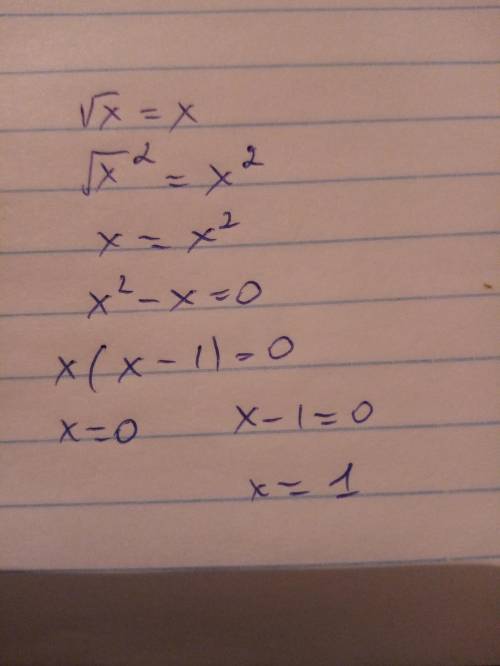 √x = x
√x² = x²
x = x²
x² - x = 0
x(x - 1) = 0
x = 0 x - 1 = 0
x = 1